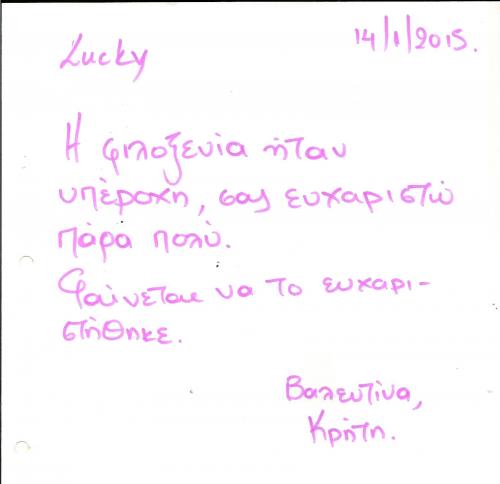 Lucky
14/1/2015.
Η φιλοξενία ήταν
υπέροχη, σας ευχαριστώ
πάρα πολύ.
Φαίνεται να το ευχαρι-
στήθηκε.
Βαλεντίνα,
Κρήτη.